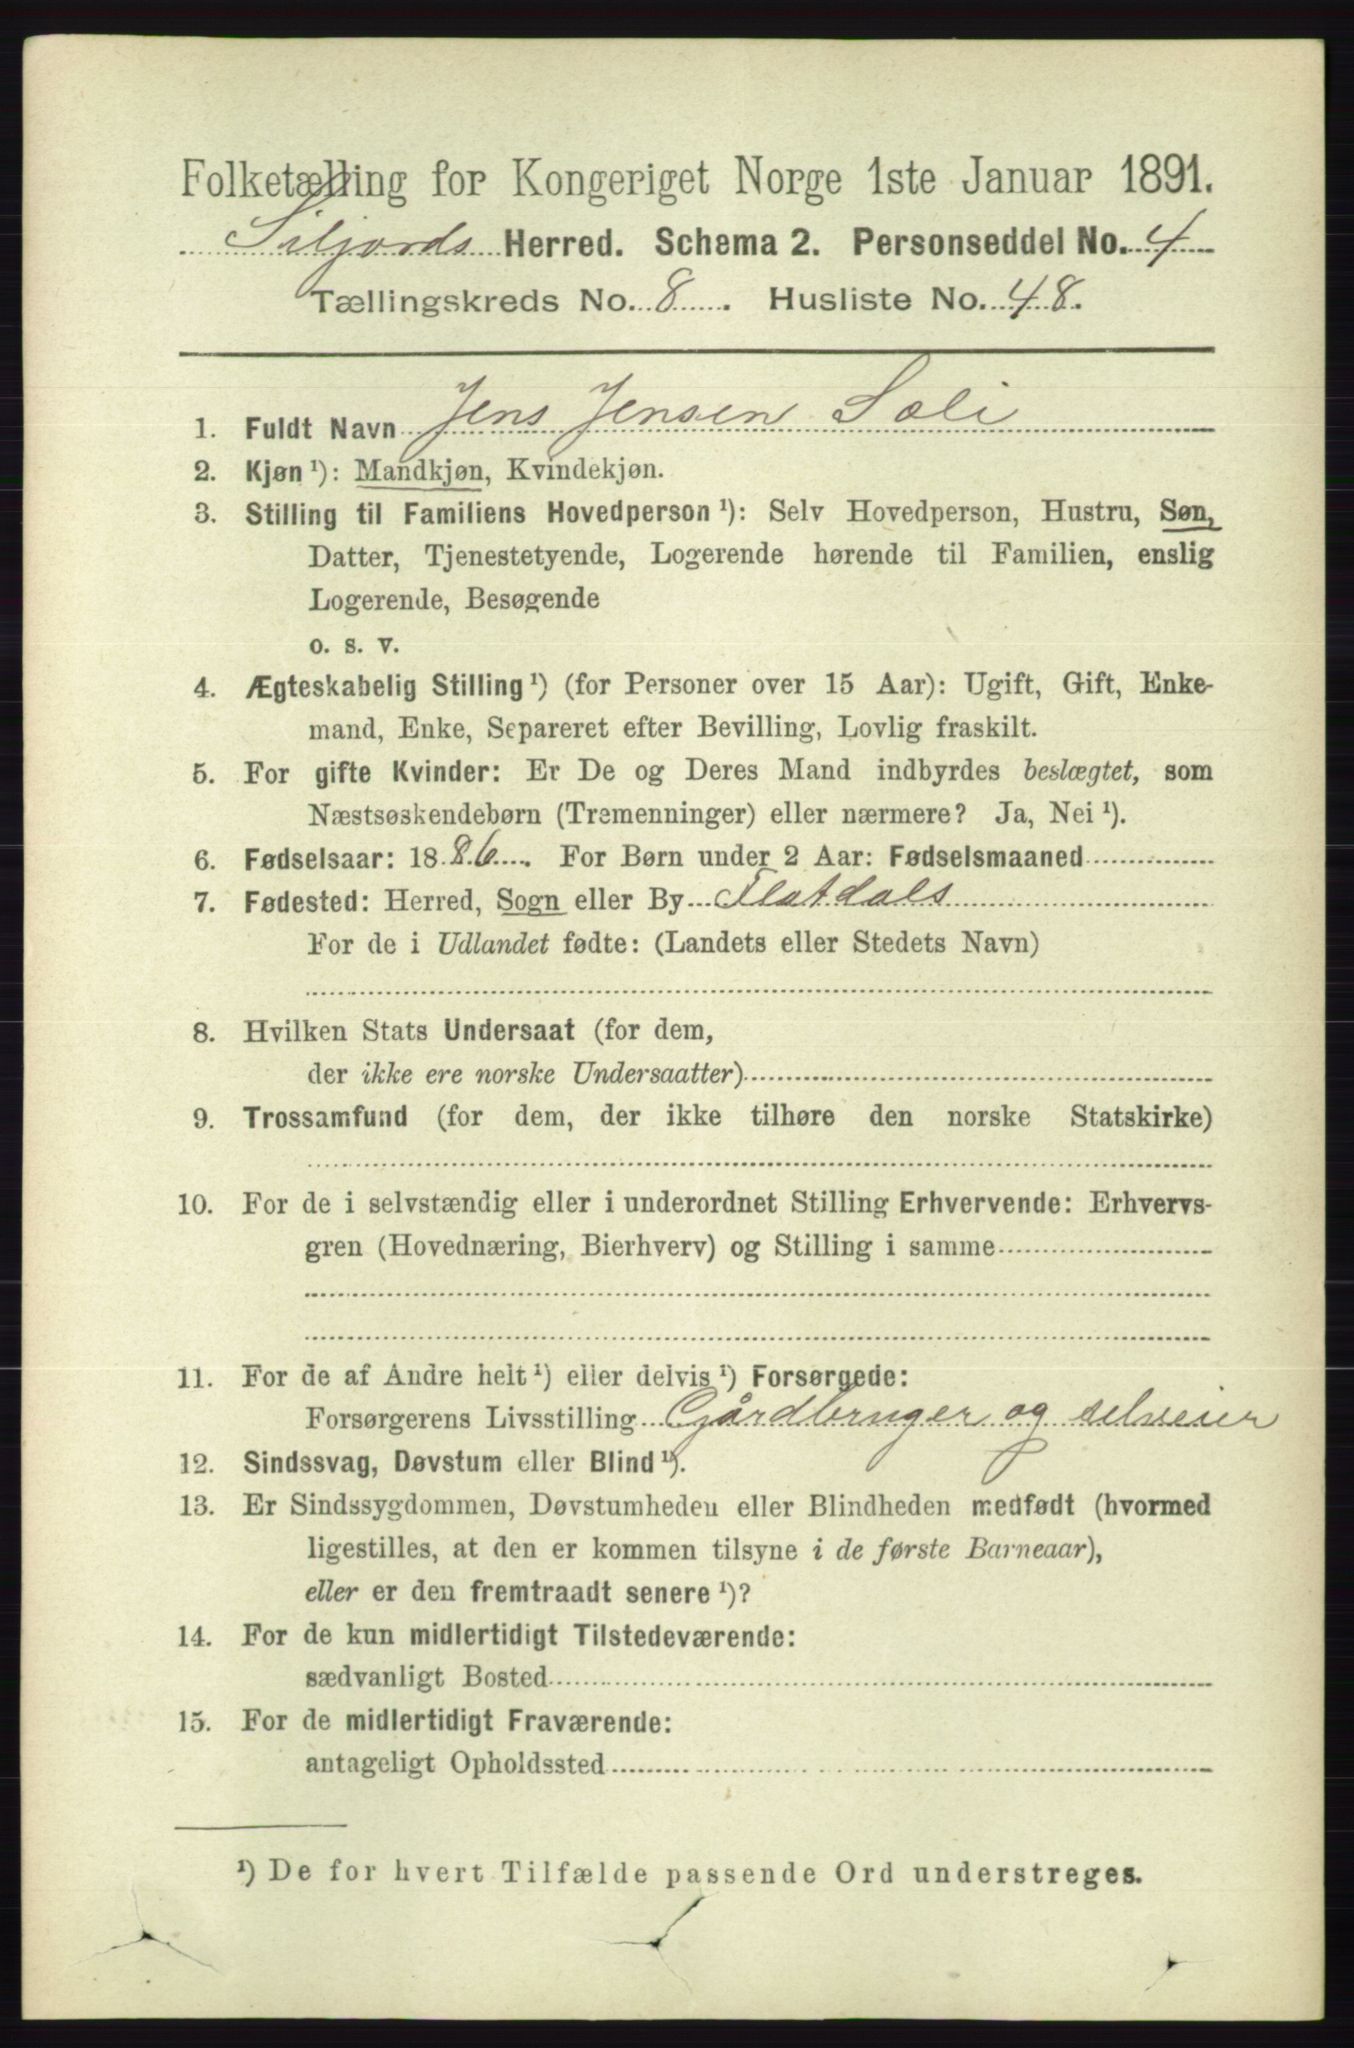 Folketælling for Kongeriget Norge 1ste Januar 1891.
Siljords Herred. Schema 2. Personseddel No. 4
Tællingskreds No. 8. Husliste No. 48.
1. Fuldt Navn Jens Jensen Soli
2. Kjøn ¹): Mandkjøn, Kvindekjøn.
3. Stilling til Familiens Hovedperson ¹): Selv Hovedperson, Hustru, Søn,
Datter, Tjenestetyende, Logerende hørende til Familien, enslig
Logerende, Besøgende
o. s. v.
4. Ægteskabelig Stilling ¹) (for Personer over 15 Aar): Ugift, Gift, Enke-
mand, Enke, Separeret efter Bevilling, Lovlig fraskilt.
5. For gifte Kvinder: Er De og Deres Mand indbyrdes beslægtet, som
Næstsøskendebørn (Tremenninger) eller nærmere? Ja, Nei ¹).
6. Fødselsaar: 1886. For Børn under 2 Aar: Fødselsmaaned
7. Fødested: Herred, Sogn eller By Flatdals
For de i Udlandet fødte: (Landets eller Stedets Navn)
8. Hvilken Stats Undersaat (for dem,
der ikke ere norske Undersaatter)
9. Trossamfund (for dem, der ikke tilhøre den norske Statskirke)
10. For de i selvstændig eller i underordnet Stilling Erhvervende: Erhvervs-
gren (Hovednæring, Bierhverv) og Stilling i samme
11. For de af Andre helt ¹) eller delvis ¹) Forsørgede:
Forsørgerens Livsstilling Gjårdbruger og selveier
12. Sindssvag, Døvstum eller Blind ¹).
13. Er Sindssygdommen, Døvstumheden eller Blindheden medfødt (hvormed
ligestilles, at den er kommen tilsyne i de første Barneaar),
eller er den fremtraadt senere ¹)?
14. For de kun midlertidigt Tilstedeværende:
sædvanligt Bosted
15. For de midlertidigt Fraværende:
antageligt Opholdssted
¹) De for hvert Tilfælde passende Ord understreges.